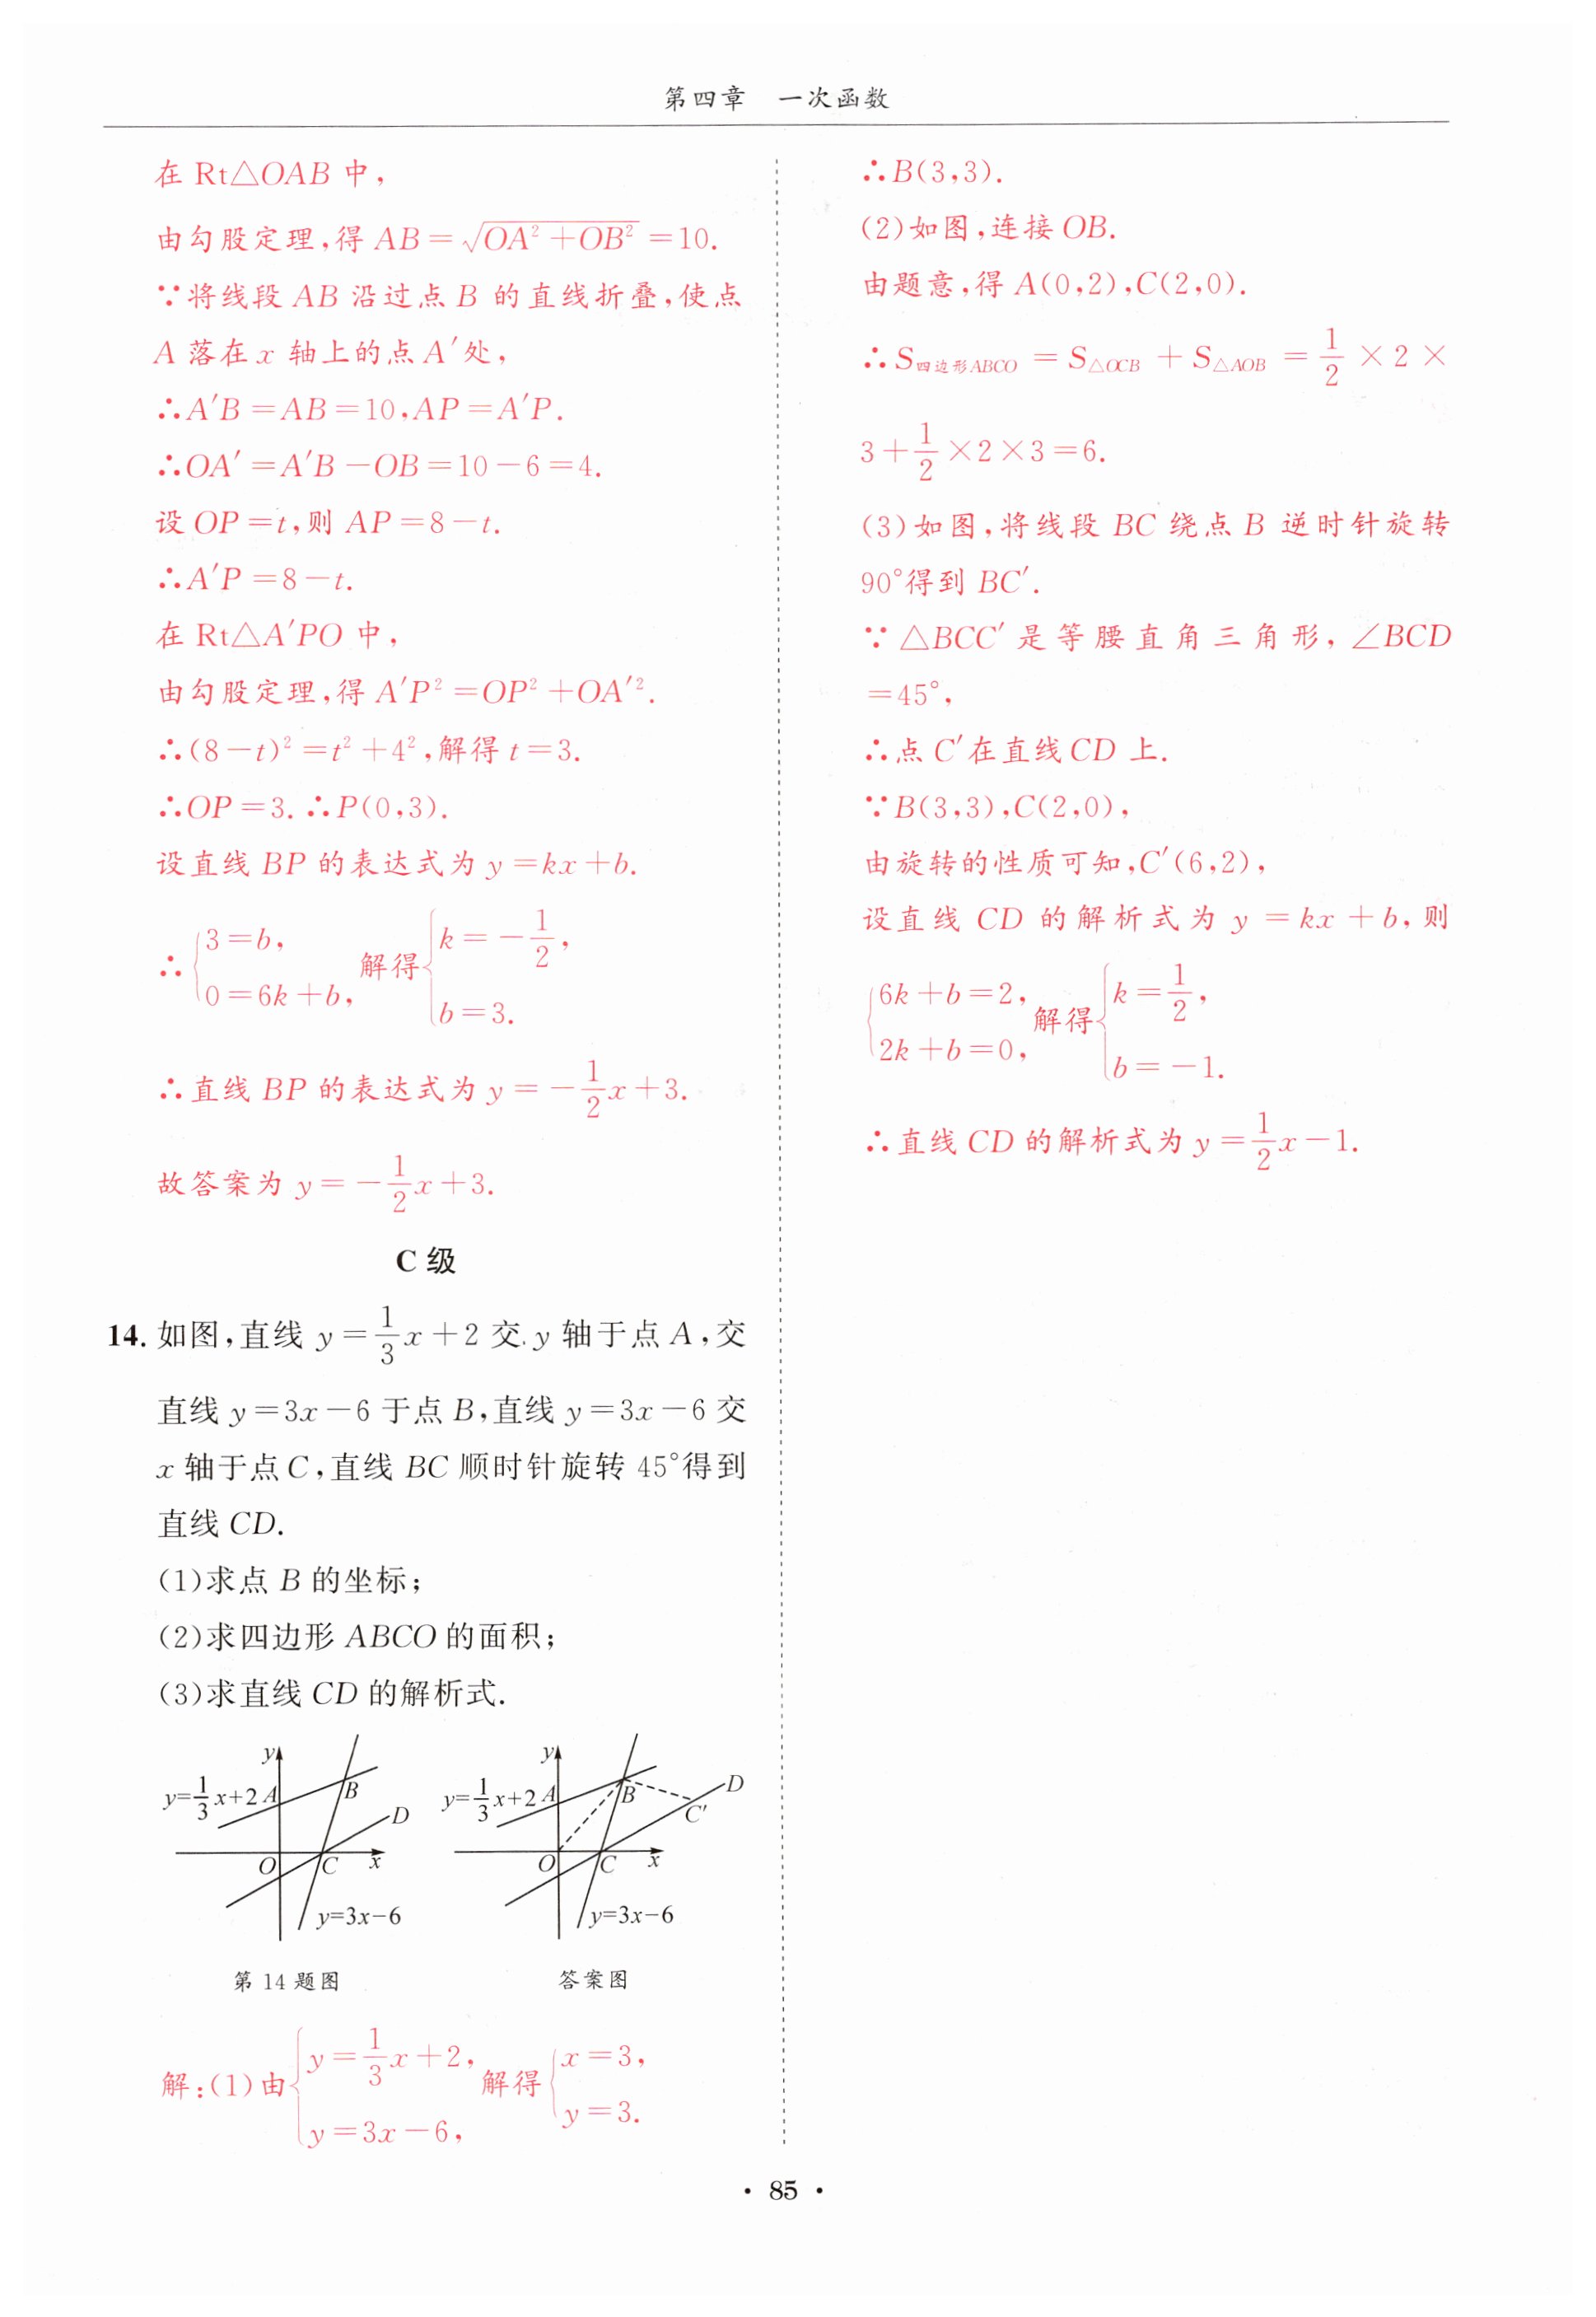 第四章 一次函数
在 Rt△OAB 中，
由勾股定理，得 AB＝√(OA²＋OB²)＝10.
∵将线段 AB 沿过点 B 的直线折叠，使点
A 落在 x 轴上的点 A′处，
∴A′B＝AB＝10，AP＝A′P.
∴OA′＝A′B－OB＝10－6＝4.
设 OP＝t，则 AP＝8－t.
∴A′P＝8－t.
在 Rt△A′PO 中，
由勾股定理，得 A′P²＝OP²＋OA′².
∴(8－t)²＝t²＋4²，解得 t＝3.
∴OP＝3. ∴P(0，3).
设直线 BP 的表达式为 y＝kx＋b.
∴{3＝b， 0＝6k＋b， 解得{k＝－1/2， b＝3.
∴直线 BP 的表达式为 y＝－1/2x＋3.
故答案为 y＝－1/2x＋3.
C 级
14. 如图，直线 y＝1/3x＋2 交 y 轴于点 A，交
直线 y＝3x－6 于点 B，直线 y＝3x－6 交
x 轴于点 C，直线 BC 顺时针旋转 45°得到
直线 CD.
(1)求点 B 的坐标；
(2)求四边形 ABCO 的面积；
(3)求直线 CD 的解析式.
y
y=1/3x+2 A
B
D
O
C
x
y=3x−6
第 14 题图
y
y=1/3x+2 A
B
D
C′
O
C
x
y=3x−6
答案图
解：(1)由{y＝1/3x＋2， y＝3x－6， 解得{x＝3， y＝3.
∴B(3，3).
(2)如图，连接 OB.
由题意，得 A(0，2)，C(2，0).
∴S四边形ABCO＝S△OCB＋S△AOB＝1/2×2×
3＋1/2×2×3＝6.
(3)如图，将线段 BC 绕点 B 逆时针旋转
90°得到 BC′.
∵△BCC′是等腰直角三角形，∠BCD
＝45°，
∴点 C′在直线 CD 上.
∵B(3，3)，C(2，0)，
由旋转的性质可知，C′(6，2)，
设直线 CD 的解析式为 y＝kx＋b，则
{6k＋b＝2， 2k＋b＝0， 解得{k＝1/2， b＝－1.
∴直线 CD 的解析式为 y＝1/2x－1.
• 85 •